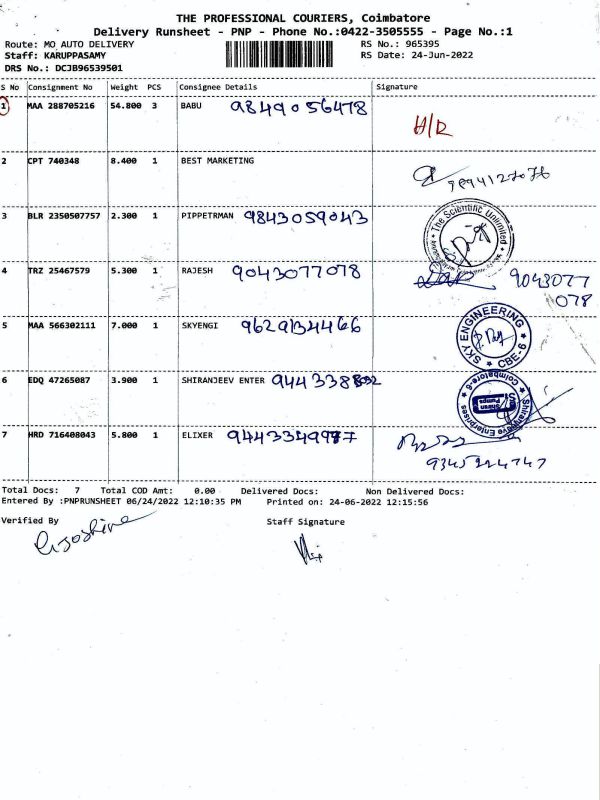 THE PROFESSIONAL COURIERS, Coimbatore
Delivery Runsheet - PNP - Phone No.:0422-3505555 - Page No.:1
Route: MO AUTO DELIVERY RS No.: 965395
Staff: KARUPPASAMY RS Date: 24-Jun-2022
DRS No.: DCJB96539501
S No Consignment No Weight PCS Consignee Details Signature
1 MAA 288705216 54.800 3 BABU 9849056478
H/R
2 CPT 740348 8.400 1 BEST MARKETING
9894127076
3 BLR 2350507757 2.300 1 PIPPETRMAN 9843059043
The Scientific Unlimited
4 TRZ 25467579 5.300 1 RAJESH 9043077078
9043077
078
5 MAA 566302111 7.000 1 SKYENGI 9629134466
SKY ENGINEERING
CBE-6
6 EDQ 47265087 3.900 1 SHIRANJEEV ENTER 944338
Coimbatore-6
Enterprises
7 HRD 716408043 5.800 1 ELIXER 9443349977
Total Docs: 7 Total COD Amt: 0.00 Delivered Docs: Non Delivered Docs:
Entered By :PNPRUNSHEET 06/24/2022 12:10:35 PM Printed on: 24-06-2022 12:15:56
Verified By Staff Signature